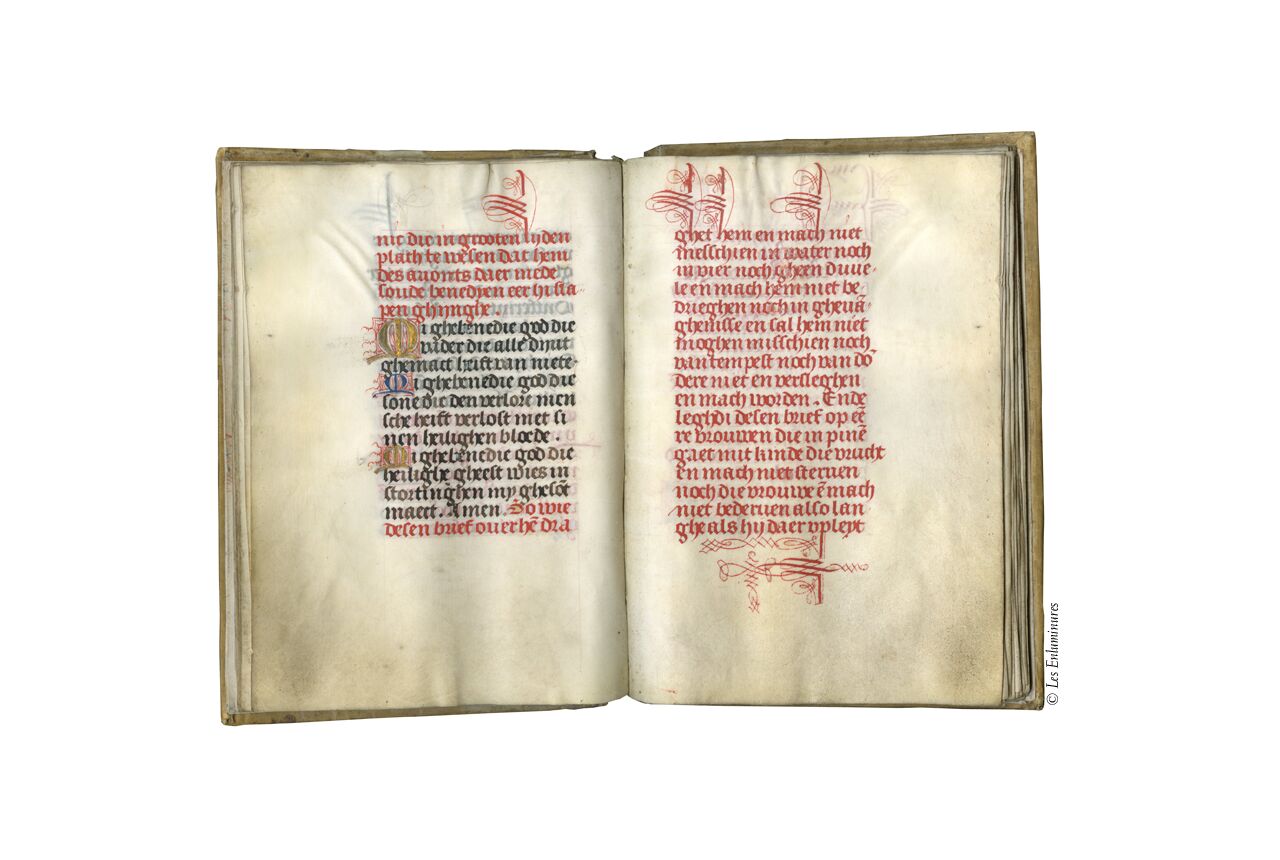 nic die in grooten lyden
plach te wesen dat hem
des auonts daer mede
soude benedyen eer hi sla
pen ghinghe.
Mi ghebenedie god die
vader die alle dinc
ghemact heift van niete
Mi ghebenedie god die
sone die den verlorē men
sche heift verlost met si
nen heilighen bloede.
Mi ghebenedie god die
heilighe gheest wies in
stortinghen my ghesōt
maect. Amen. So wie
desen brief ouer hē dra
ghet hem en mach niet
messchien in water noch
in vier noch gheen duue-
le en mach hem niet be-
drieghen noch in gheuā-
ghenisse en sal hem niet
moghen misschien noch
van tempest noch van dō
dere niet en versleghen
en mach worden. Ende
leghdi desen brief op eē
re vrouwen die in pinē
gaet mit kinde die vrucht
en mach niet steruen
noch die vrouwe ē mach
niet bederuen also lan
ghe als hij daer vpleyt
© Les Enluminures